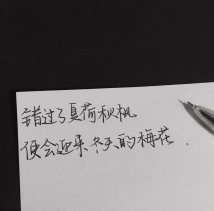 错过了夏荷秋枫
便会迎来冬天的梅花.